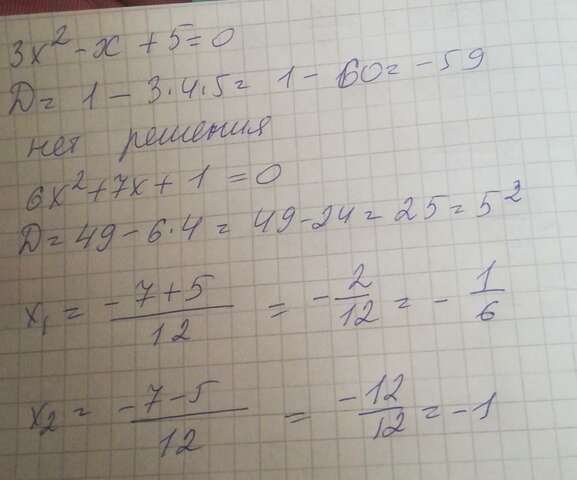 3x² - x + 5 = 0
D = 1 - 3·4·5 = 1 - 60 = -59
нет решения
6x² + 7x + 1 = 0
D = 49 - 6·4 = 49 - 24 = 25 = 5²
x₁ = (-7+5)/12 = -2/12 = -1/6
x₂ = (-7-5)/12 = -12/12 = -1